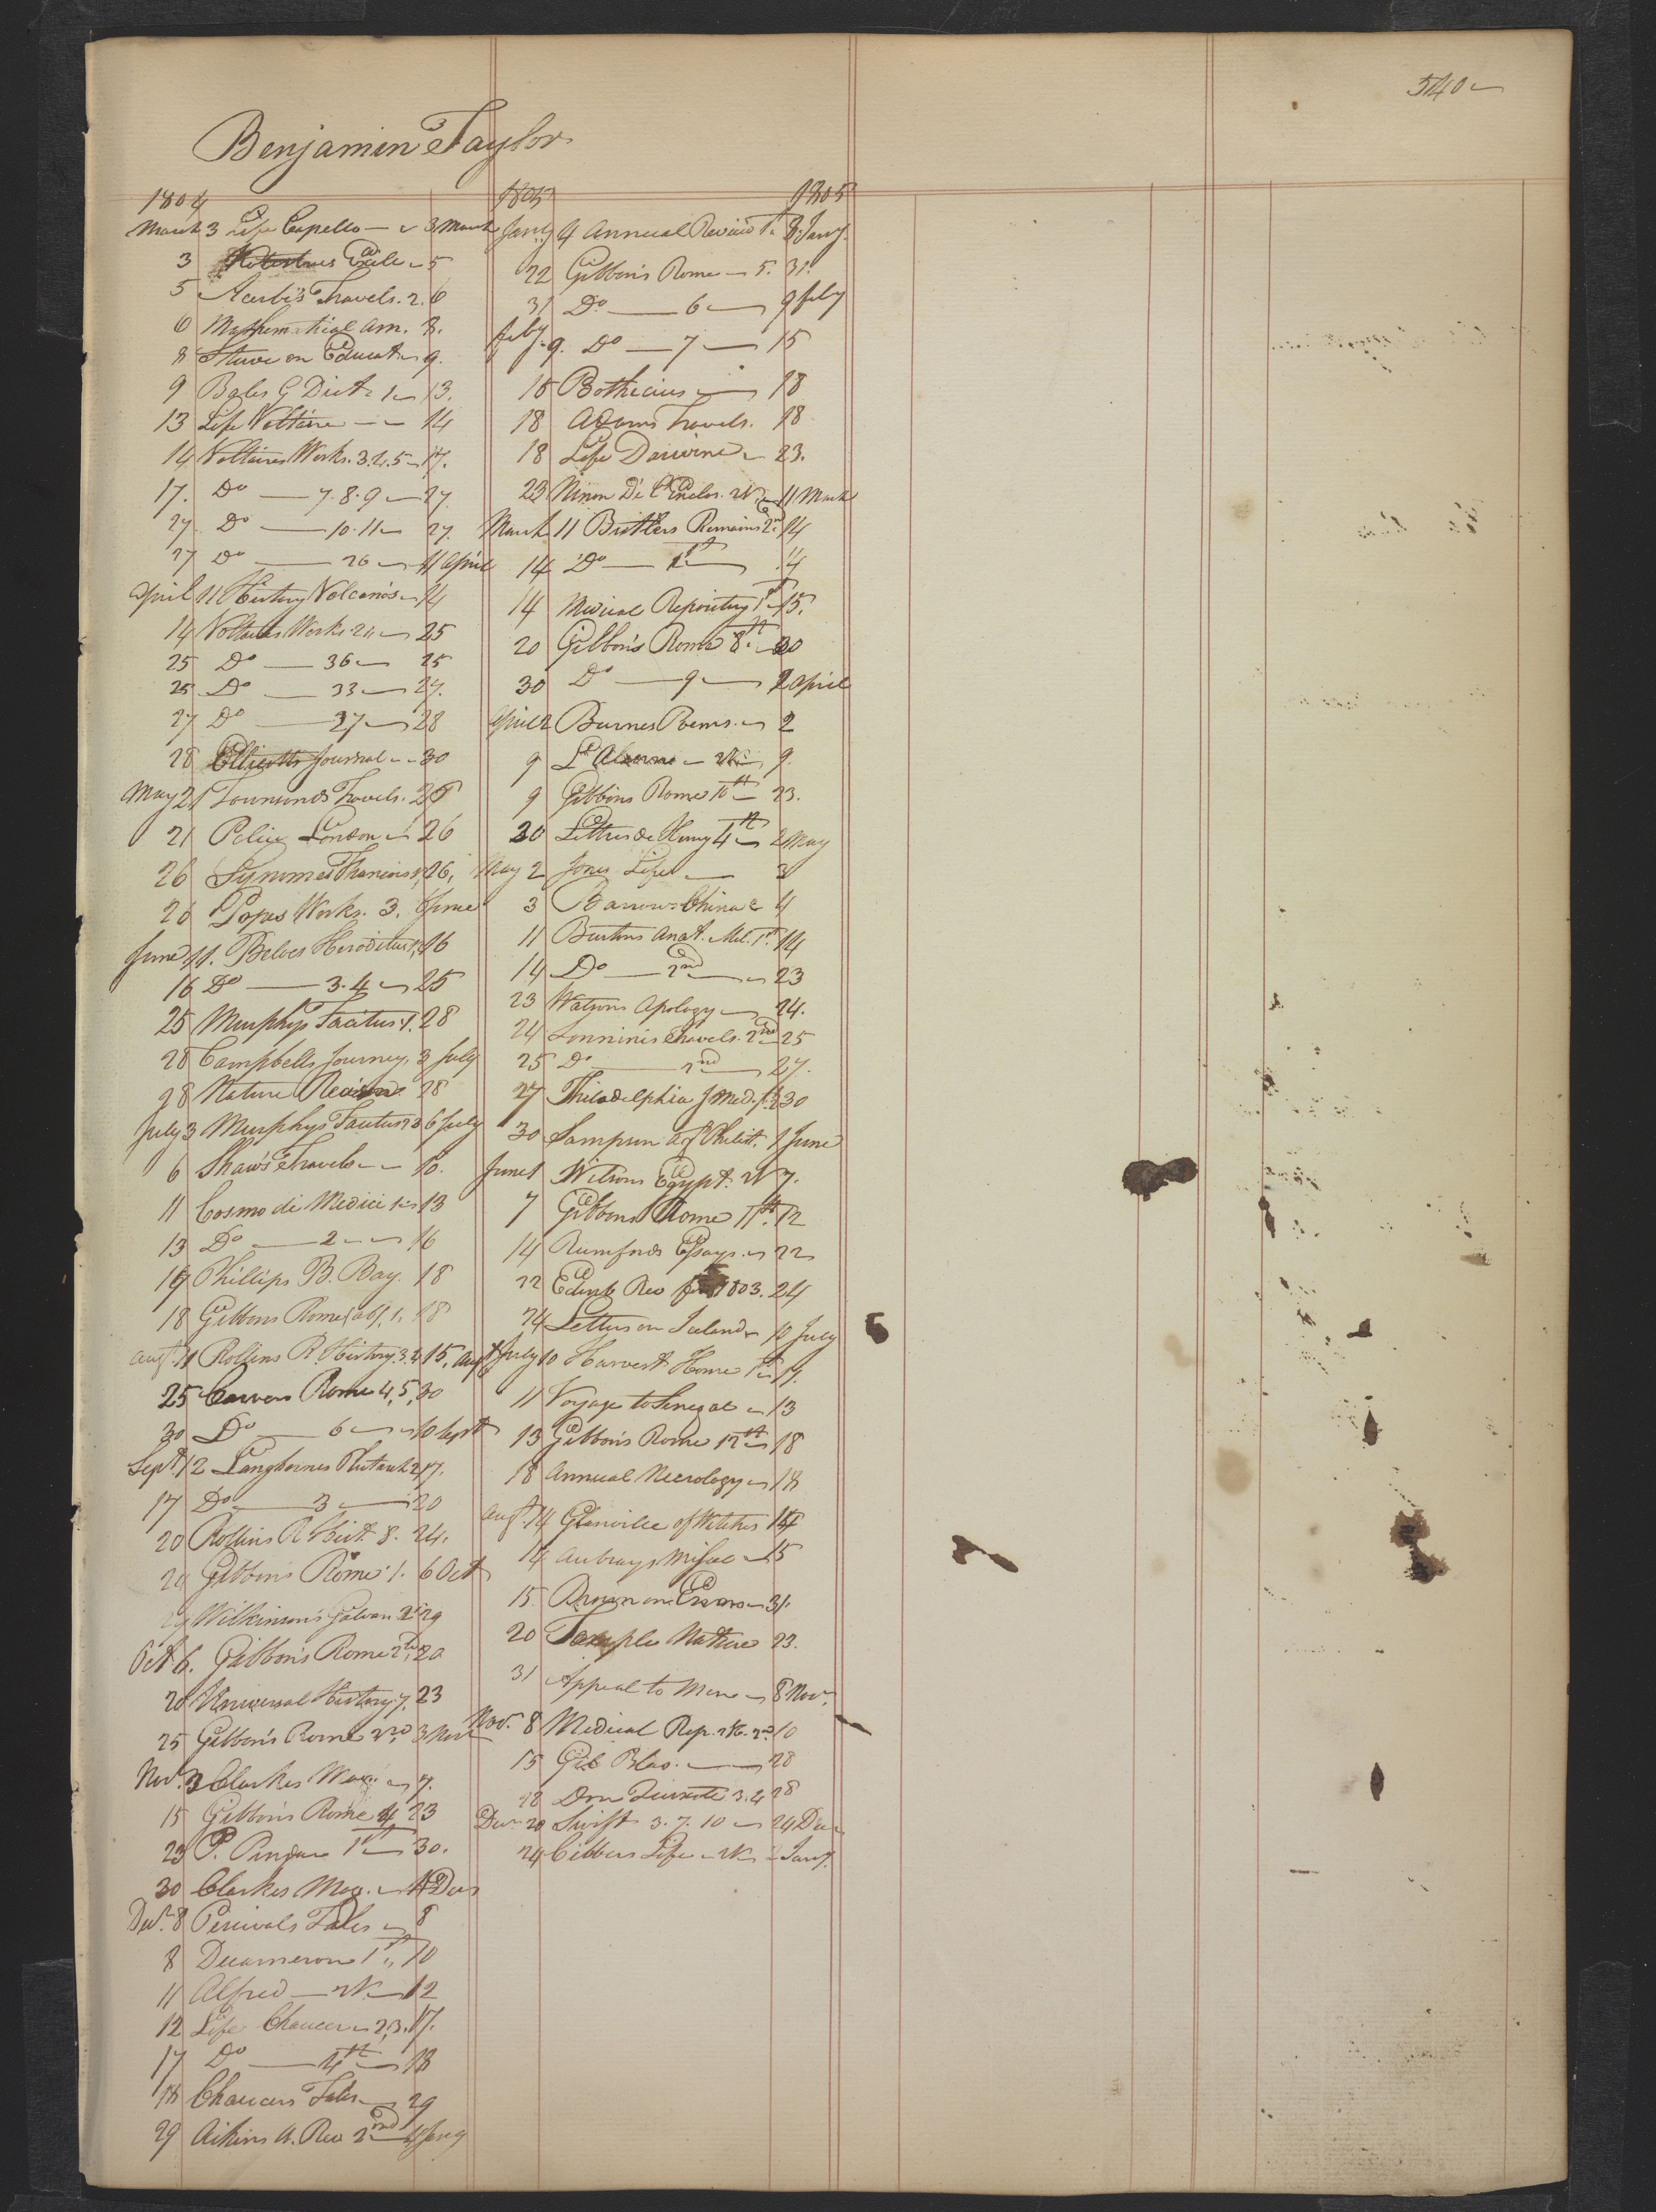 540
Benjamin Taylor
1804
March 3 Life Capello 3 March
3 5
5 Acerbi's Travels. 2. 6
6 Mathematical Am. 8.
8 on Educat 9.
9 G Dict 1 13.
13 Life Voltaire 14
14 Voltaires Works. 3.4.5 17.
17. Do 7.8.9 27
27 Do 10.11 27.
27 Do 26 11 April
April 11 History Volcano's 14
14 Voltaires Works 25
25 Do 36 25
25 Do 33 27.
27 Do 37 28
28 Ellicotts Journal 30
May 21 Townsends Travels.
21 Police London 26
26 26.
26 Popes Works. 3. June
June 11. Beloes Heroditus 16
16 Do 3.4 25
25 Murphys Tacitus 1. 28
28 Campbells Journey, 3 July
28 Nature 28
July 3 Murphys Tacitus 6 July
6 Shaw's Travels 10.
11 Cosmo di Medici 1 13
13 Do 2 16
16 Phillips B. Bay. 18
18 Gibbons Rome (ab), 1. 18
Augt. 11 Rollins R. History. 3. 15. Augt
25 Rome 4,5, 30
30 Do 6 10 Sept
Sept. 12 Langhornes Plutarch 2 17.
17 Do 3 20
20 Rollins R Hist 8. 24.
24 Gibbons Rome 1. 6 Oct
Wilkinson's Galvan 29
Oct 6. Gibbon's Rome 2nd 20
20 Universal History 7. 23
25 Gibbon's Rome 3 Nov
Nov. 3 Clarkes Mag. 7.
15 Gibbon's Rome 4 23
23 P. Pindar 1st 30.
30 Clarkes Mag. Decr
Decr. 8 Percivals Tales 8
8 Decameron 1st 10
11 Alfred N. 12
12 Life Chaucer 2,3. 17.
17 Do 4th 18
18 Chaucers Tales 29
29 Aikins A. Rev 2nd 4 Jany
1805 1805
Jany 4 Annual Review 1st 8 Jany.
22 Gibbon's Rome 5. 31.
31 Do 6 9 feby
feby. 9. Do 7 15
15 Bothecius 18
18 Adams Travels. 18
18 Life Darwin 23.
23 Ninon De L'Enclos. 11 March
March 11 Butlers Remains 2nd 14
14 Do 1st 14
14 Medical Repository 1st 15.
20 Gibbon's Rome 8th 30
30 Do 9 2 April
April 2 Burnes Poems. 2
9 9.
9 Gibbons Rome 10th 23.
30 Lettres de Henry 4th 2 May
May 2 Jones Life 3
3 Barrows China 4
11 Burtons Anat. Mel. 1st 14
14 Do 2nd 23
23 Watsons Apology 24.
24 Sonninis Travels. 2nd 25
25 Do 2nd 27.
27 Philadelphia J Med. 30
30 Sampson Ag Philist. 1 June
June 1 Wilsons Egypt. 7.
7 Gibbons Rome 11th. 12
14 Rumfords Essays. 22
22 Edinb Rev for 1803. 24
24 Letters on Iceland 10 July
July 10 Harvest Home 1st 11.
11 Voyage to Senegal 13
13 Gibbon's Rome 12th 18
18 Annual Necrology 18
Augt. 14 Glanville of Witches 14
14 Aubrays Miscel 15
15. Brown on Errors 31.
20 Temple Nature 23.
31 Appeal to Men 8 Novr.
Nov. 8 Medical Rep. 2nd 10
15 Gil Blas. 28
28 Don Quixote 3.4 28
Decr 20 Swift 3. 7. 10 24 Dec
24 Cibbers Life Jany.